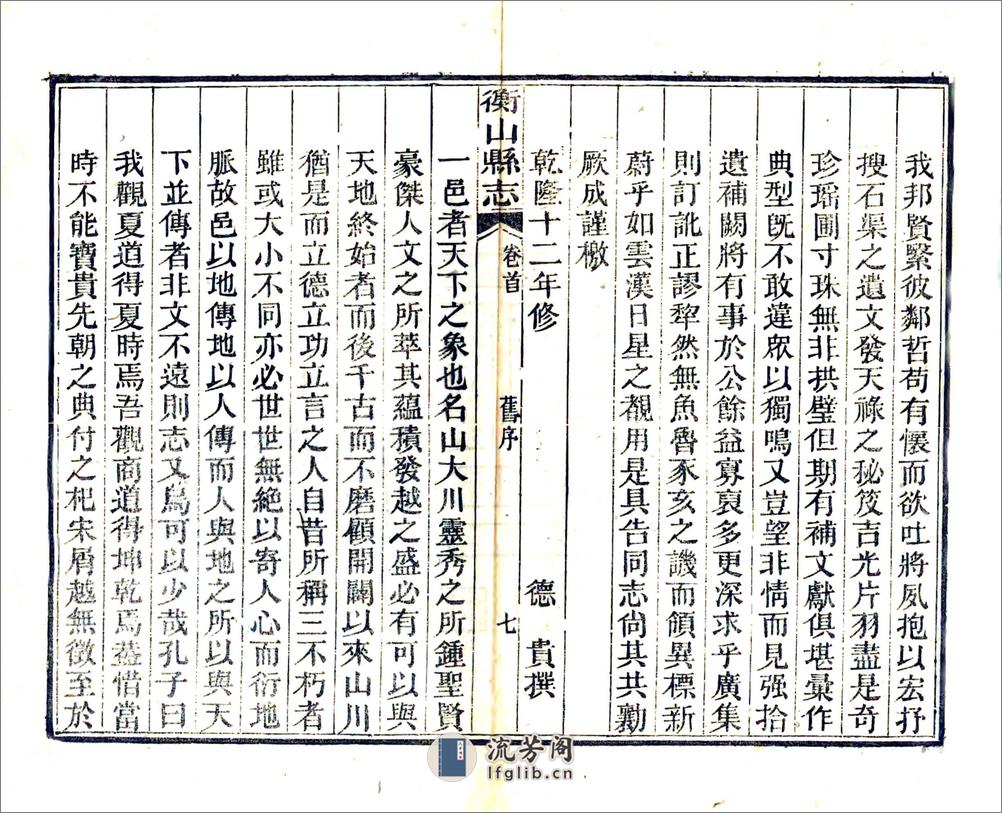 我邦賢繄彼鄰哲苟有懷而欲吐將夙抱以宏抒
搜石渠之遺文發天祿之秘笈吉光片羽盡是奇
珍瑶圃寸珠無非拱璧但期有補文獻俱堪彙作
典型旣不敢違眾以獨鳴又豈望非情而見强拾
遺補闕將有事於公餘益寡裒多更深求乎廣集
則訂訛正謬犂然無魚魯豕亥之譏而領異標新
蔚乎如雲漢日星之覩用是具告同志尚其共勷
厥成謹檄
乾隆十二年修 德貴撰
衡山縣志 卷首 舊序 七
一邑者天下之象也名山大川靈秀之所鍾聖賢
豪傑人文之所萃其蘊積發越之盛必有可以與
天地終始者而後千古而不磨顧開闢以來山川
猶是而立德立功立言之人自昔所稱三不朽者
雖或大小不同亦必世世無絶以寄人心而衍地
脈故邑以地傳地以人傳而人與地之所以與天
下並傳者非文不遠則志又烏可以少哉孔子曰
我觀夏道得夏時焉吾觀商道得坤乾焉葢惜當
時不能寶貴先朝之典付之杞宋屑越無徵至於
流芳阁
lfglib.cn